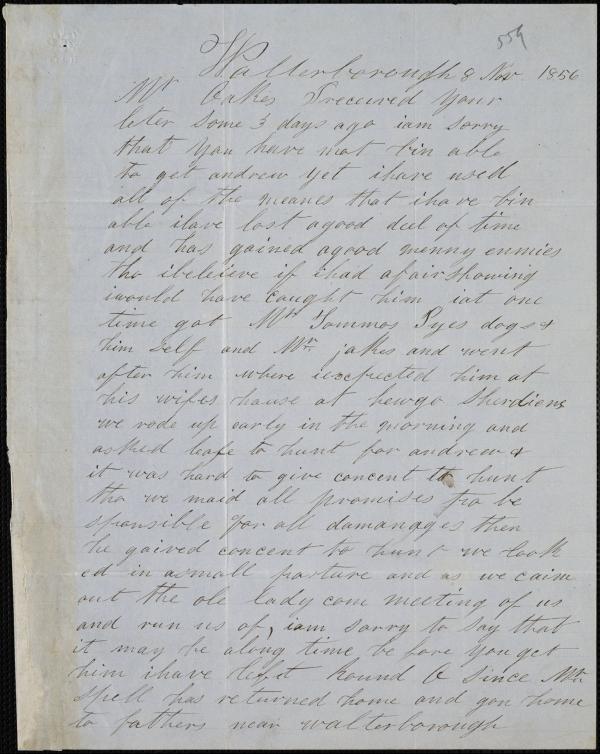 559
Walterborough 8 Nov. 1856
Mr Oakes I received your
leter some 3 days ago iam sorry
that you have not bin able
to get andrew yet ihave used
all of the meanes that ihave bin
able ilave lost agood deel of time
and has gained agood menny enmies
tho ibeleieve if ihad afairshowing
iwould have caught him iat one
time got Mr Tommos Pyes dogs &
him self and Mr jakes and went
after him where iexspected him at
his wifes house at hewgo Sherdiens
we rode up early in the morning and
asked leafe to hunt for andrew &
it was hard to give concent to hunt
tho we maid all promises to be
sponsible for all damanages then
he gaived concent to hunt we look
ed in asmall parture and as we caim
out the ole lady com meeting of us
and run us of, iam sorry to say that
it may be along time before you get
him ihave left Round O since Mr
Spell has returned home and gon home
to fathers near walterborough